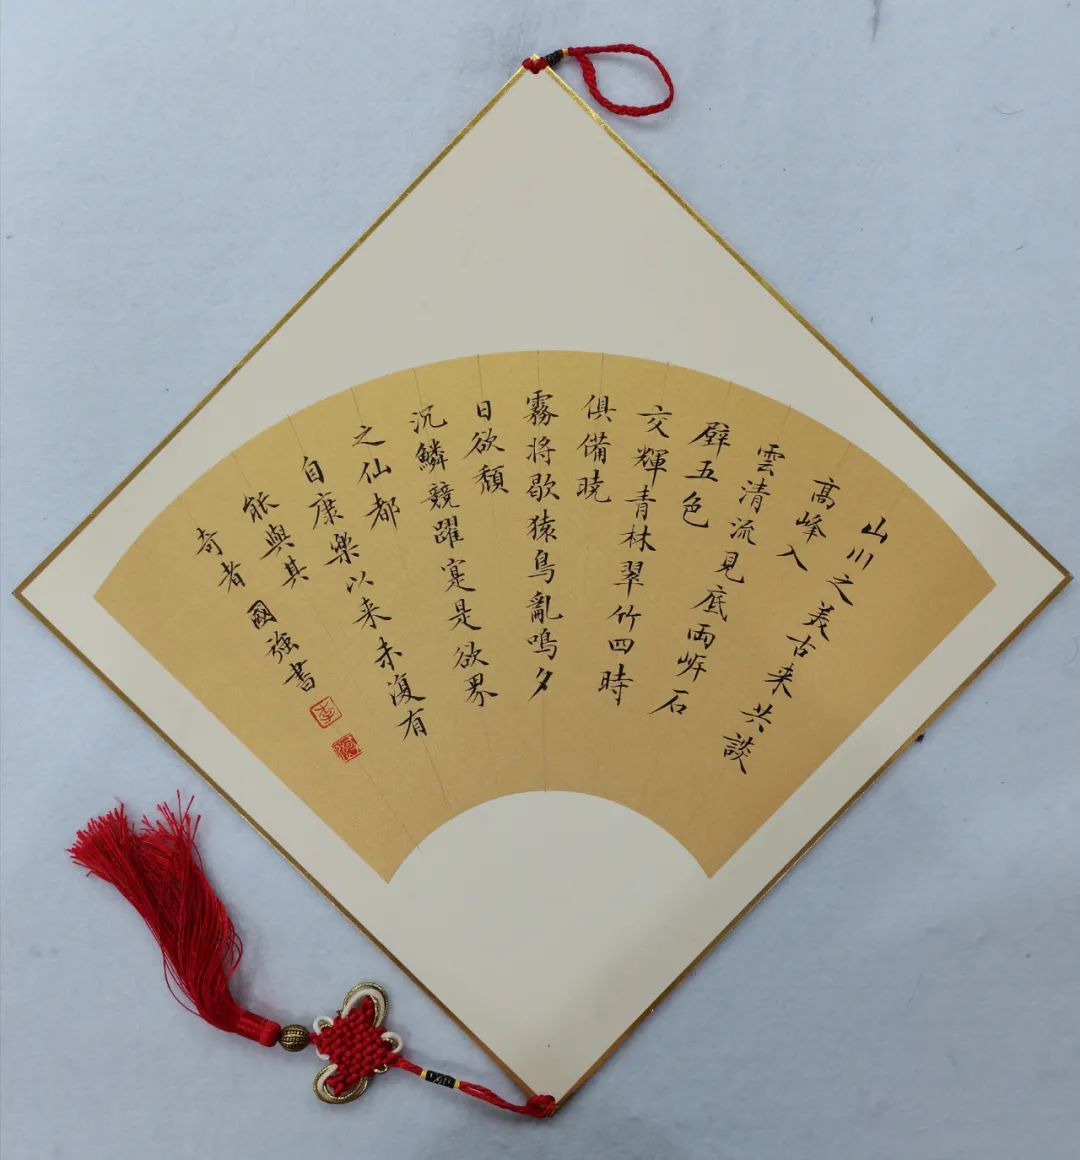 山川之美古来共談
高峰入
雲清流見底兩岍石
壁五色
交輝青林翠竹四時
俱備曉
霧将歇猿鳥亂鳴夕
日欲頹
沉鱗競躍寔是欲界
之仙都
自康樂以来未復有
能與其
奇者
國強書
李